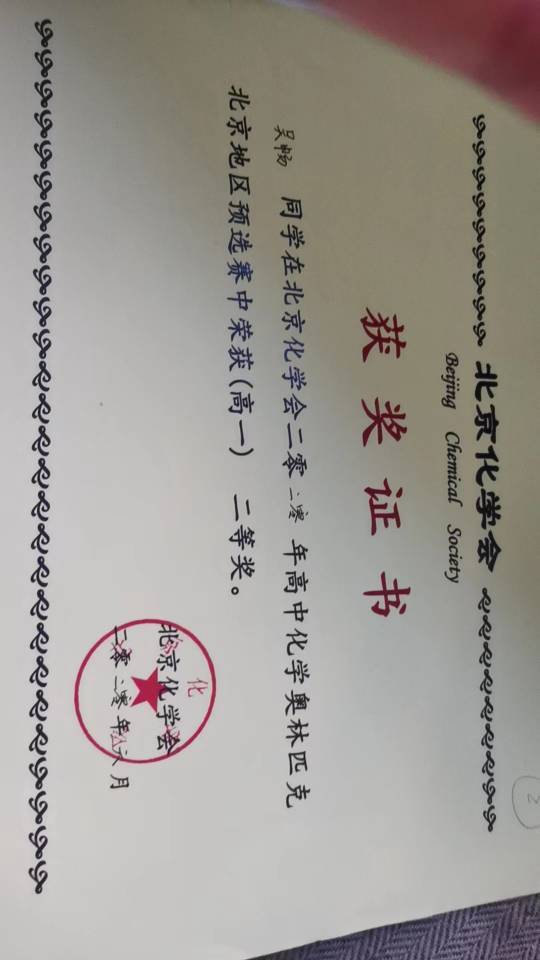 北京化学会
Beijing Chemical Society
获奖证书
吴畅 同学在北京化学会二零二零年高中化学奥林匹克
北京地区预选赛中荣获(高一) 二等奖。
北京化学会
二零二零年 月